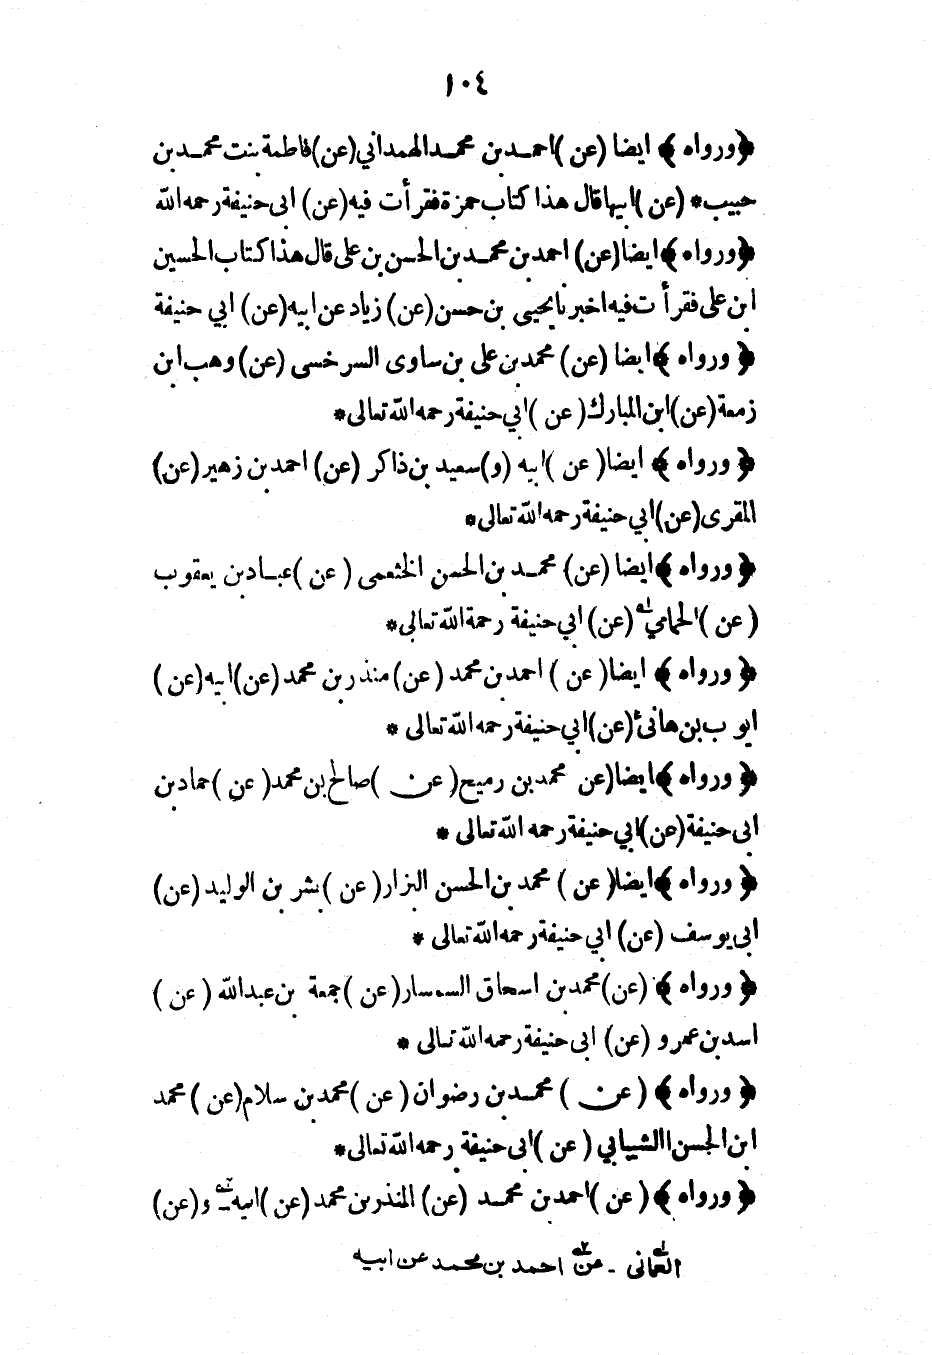 ١٠٤
﴿ورواه﴾ ايضا (عن) احمد بن محمد الهمداني (عن) فاطمة بنت محمد بن
حبيب * (عن) ابيها قال هذا كتاب حمزة فقرأت فيه (عن) ابى حنيفة رحمه الله
﴿ورواه﴾ ايضا (عن) احمد بن محمد بن الحسن بن على قال هذا كتاب الحسين
ابن على فقرأت فيه اخبرنا يحيى بن حسن (عن) زياد عن ابيه (عن) ابي حنيفة
﴿ورواه﴾ ايضا (عن) محمد بن على بن ساوى السرخسى (عن) وهب ابن
زمعة (عن) ابن المبارك (عن) ابي حنيفة رحمه الله تعالى *
﴿ورواه﴾ ايضا (عن) ابيه (و) سعيد بن ذاكر (عن) احمد بن زهير (عن)
المقرى (عن) ابي حنيفة رحمه الله تعالى *
﴿ورواه﴾ ايضا (عن) محمد بن الحسن الخثعمى (عن) عباد بن يعقوب
(عن) الحمامي له (عن) ابي حنيفة رحمة الله تعالى *
﴿ورواه﴾ ايضا (عن) احمد بن محمد (عن) منذر بن محمد (عن) ابيه (عن)
ايوب بن هانئ (عن) ابي حنيفة رحمه الله تعالى *
﴿ورواه﴾ ايضا (عن محمد بن رميح (عن) صالح بن محمد (عن) حماد بن
ابى حنيفة (عن) ابي حنيفة رحمه الله تعالى *
﴿ورواه﴾ ايضا (عن) محمد بن الحسن البزار (عن) بشر بن الوليد (عن)
ابى يوسف (عن) ابي حنيفة رحمه الله تعالى *
﴿ورواه﴾ (عن) محمد بن اسحاق السمسار (عن) جمعة بن عبدالله (عن)
اسد بن عمرو (عن) ابى حنيفة رحمه الله تعالى *
﴿ورواه﴾ (عن) محمد بن رضوان (عن) محمد بن سلام (عن) محمد
ابن الحسن الشيبابي (عن) ابى حنيفة رحمه الله تعالى *
﴿ورواه﴾ (عن) احمد بن محمد (عن) المنذر بن محمد (عن) ابيه ٢ـه و (عن)
له العمانى - ٢ـه عن احمد بن محمد عن ابيه